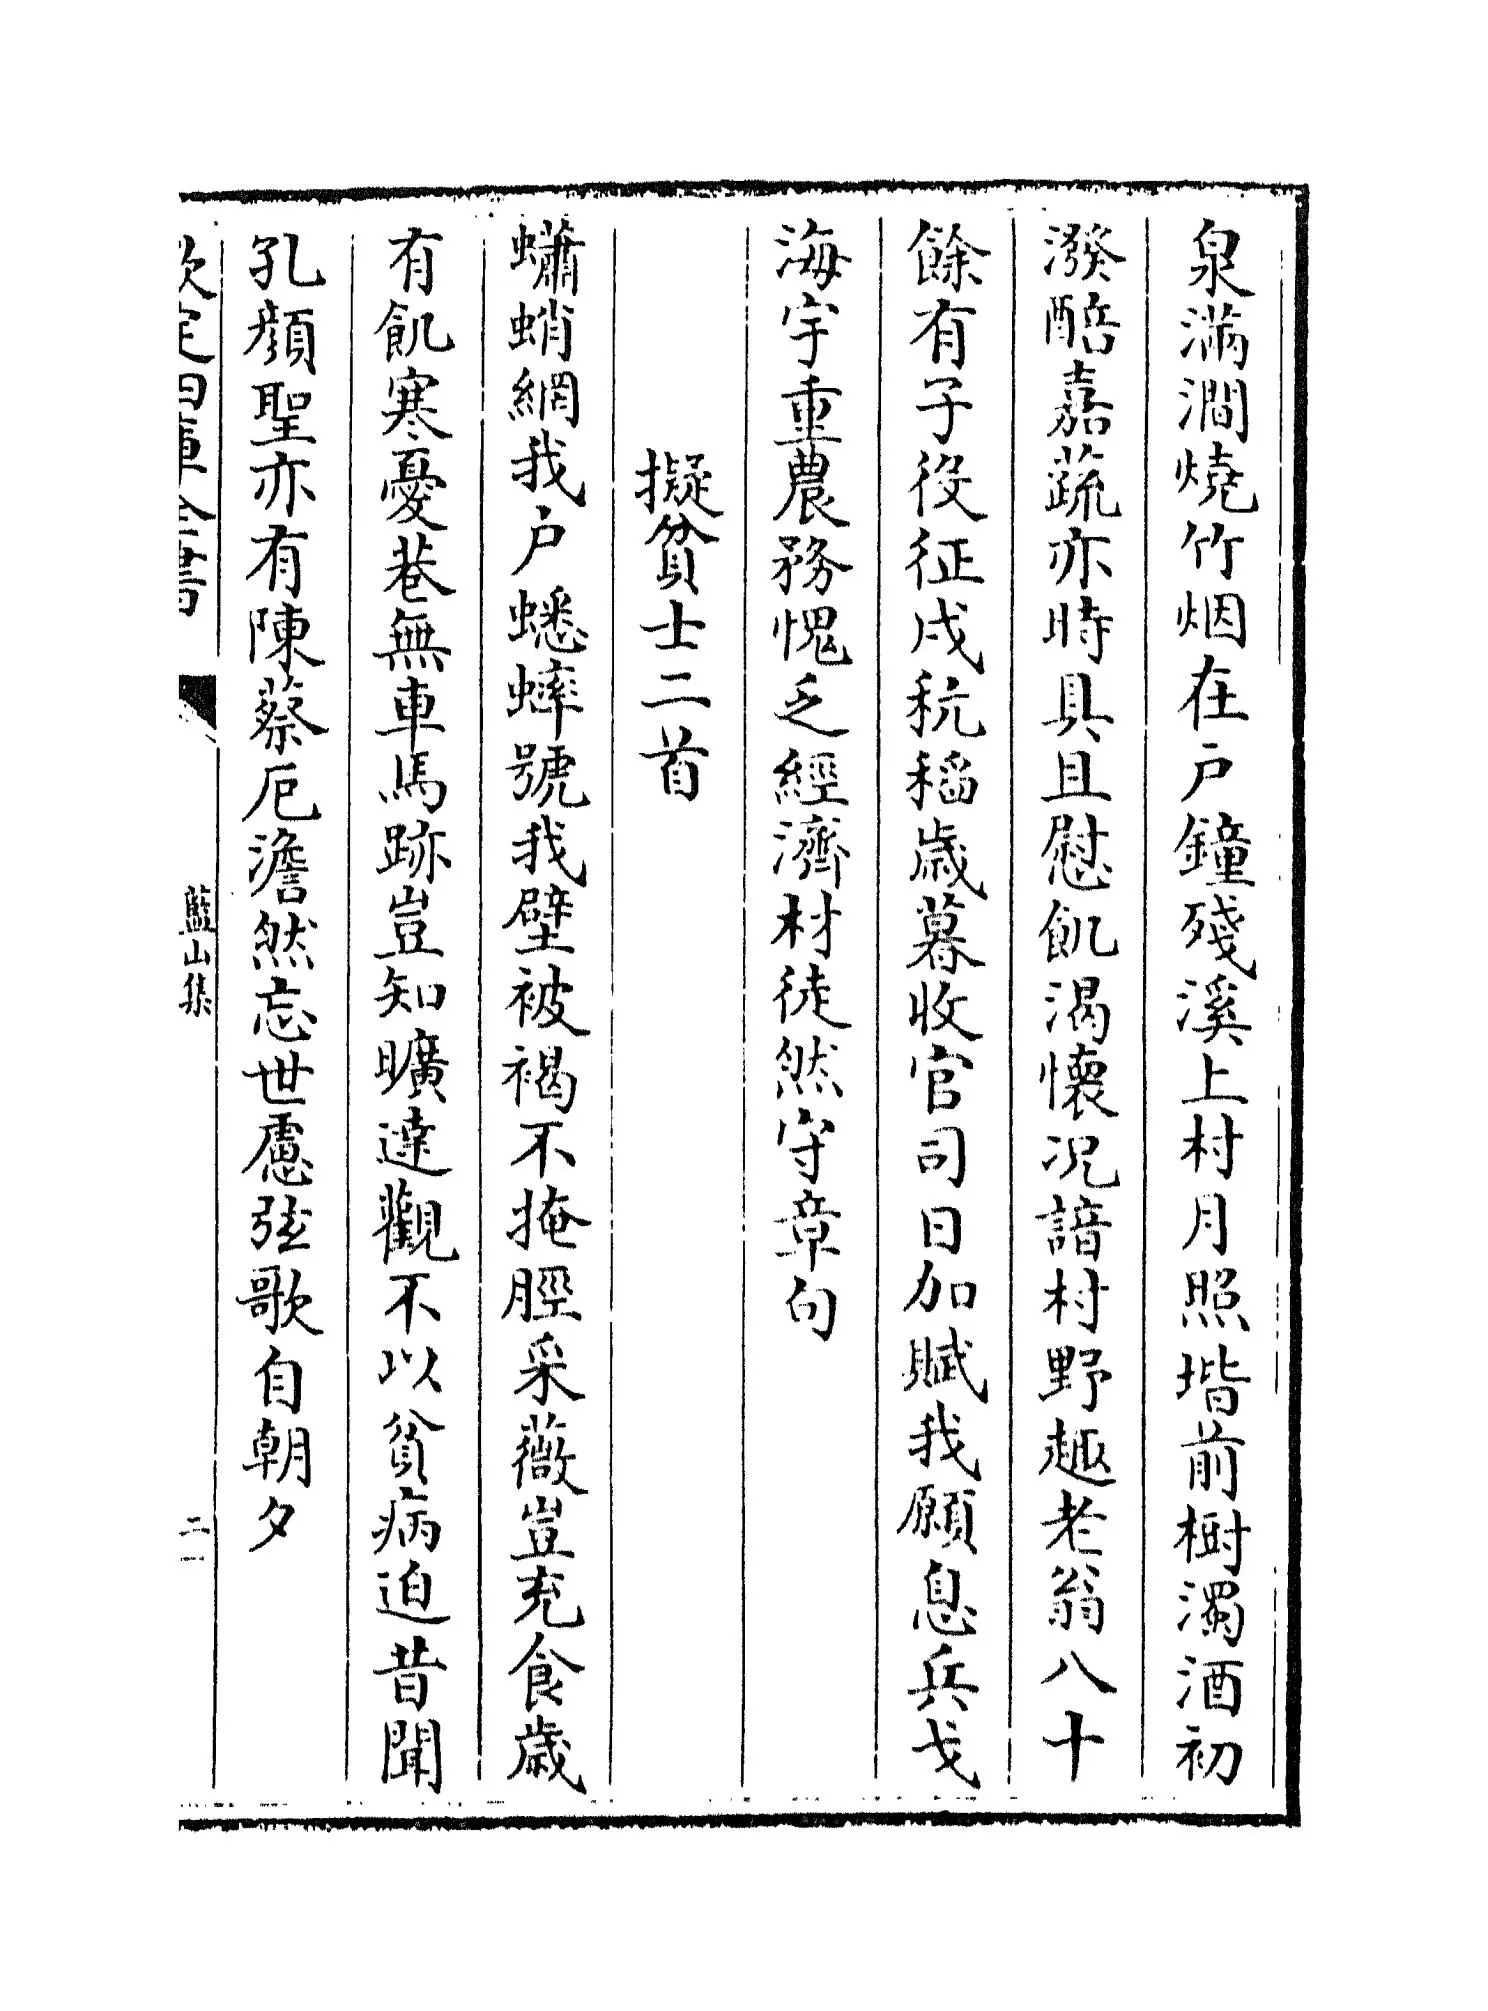 泉滿澗燒竹烟在户鐘殘溪上村月照堦前樹濁酒初
潑醅嘉蔬亦時具且慰飢渴懷况諳村野趣老翁八十
餘有子役征戍秔稲歳暮收官司日加賦我願息兵戈
海宇重農務愧乏經濟材徒然守章句
擬貧士二首
蠨蛸網我户蟋蟀號我壁被褐不掩脛采薇豈充食歳
有飢寒憂巷無車馬跡豈知曠達觀不以貧病迫昔聞
孔顔聖亦有陳蔡厄澹然忘世慮弦歌自朝夕
欽定四庫全書
藍山集
二